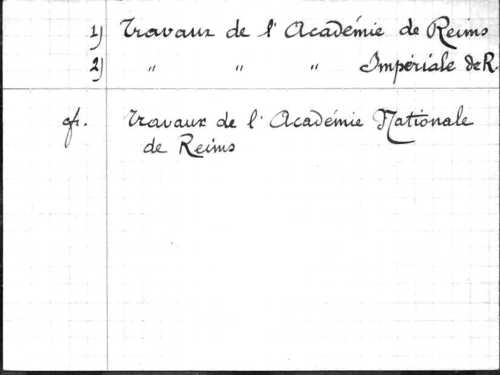 1) Travaux de l'Académie de Reims
2) " " " Impériale de R.
cfr. Travaux de l'Académie Nationale
de Reims